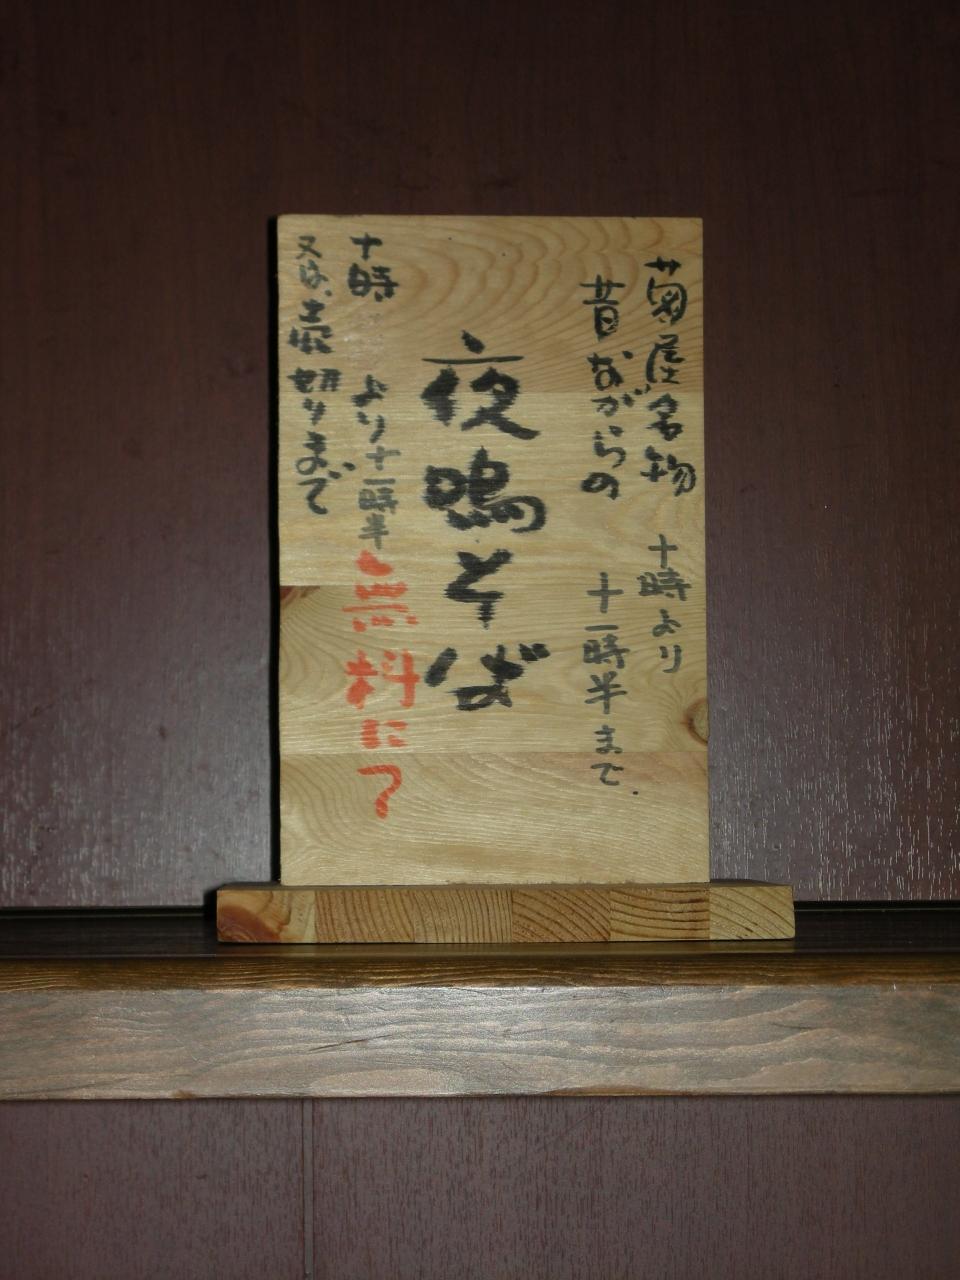 菊屋名物 十時より
昔ながらの 十一時半まで.
夜鳴そば
十時 より十一時半 無料にて
又は、売切りまで